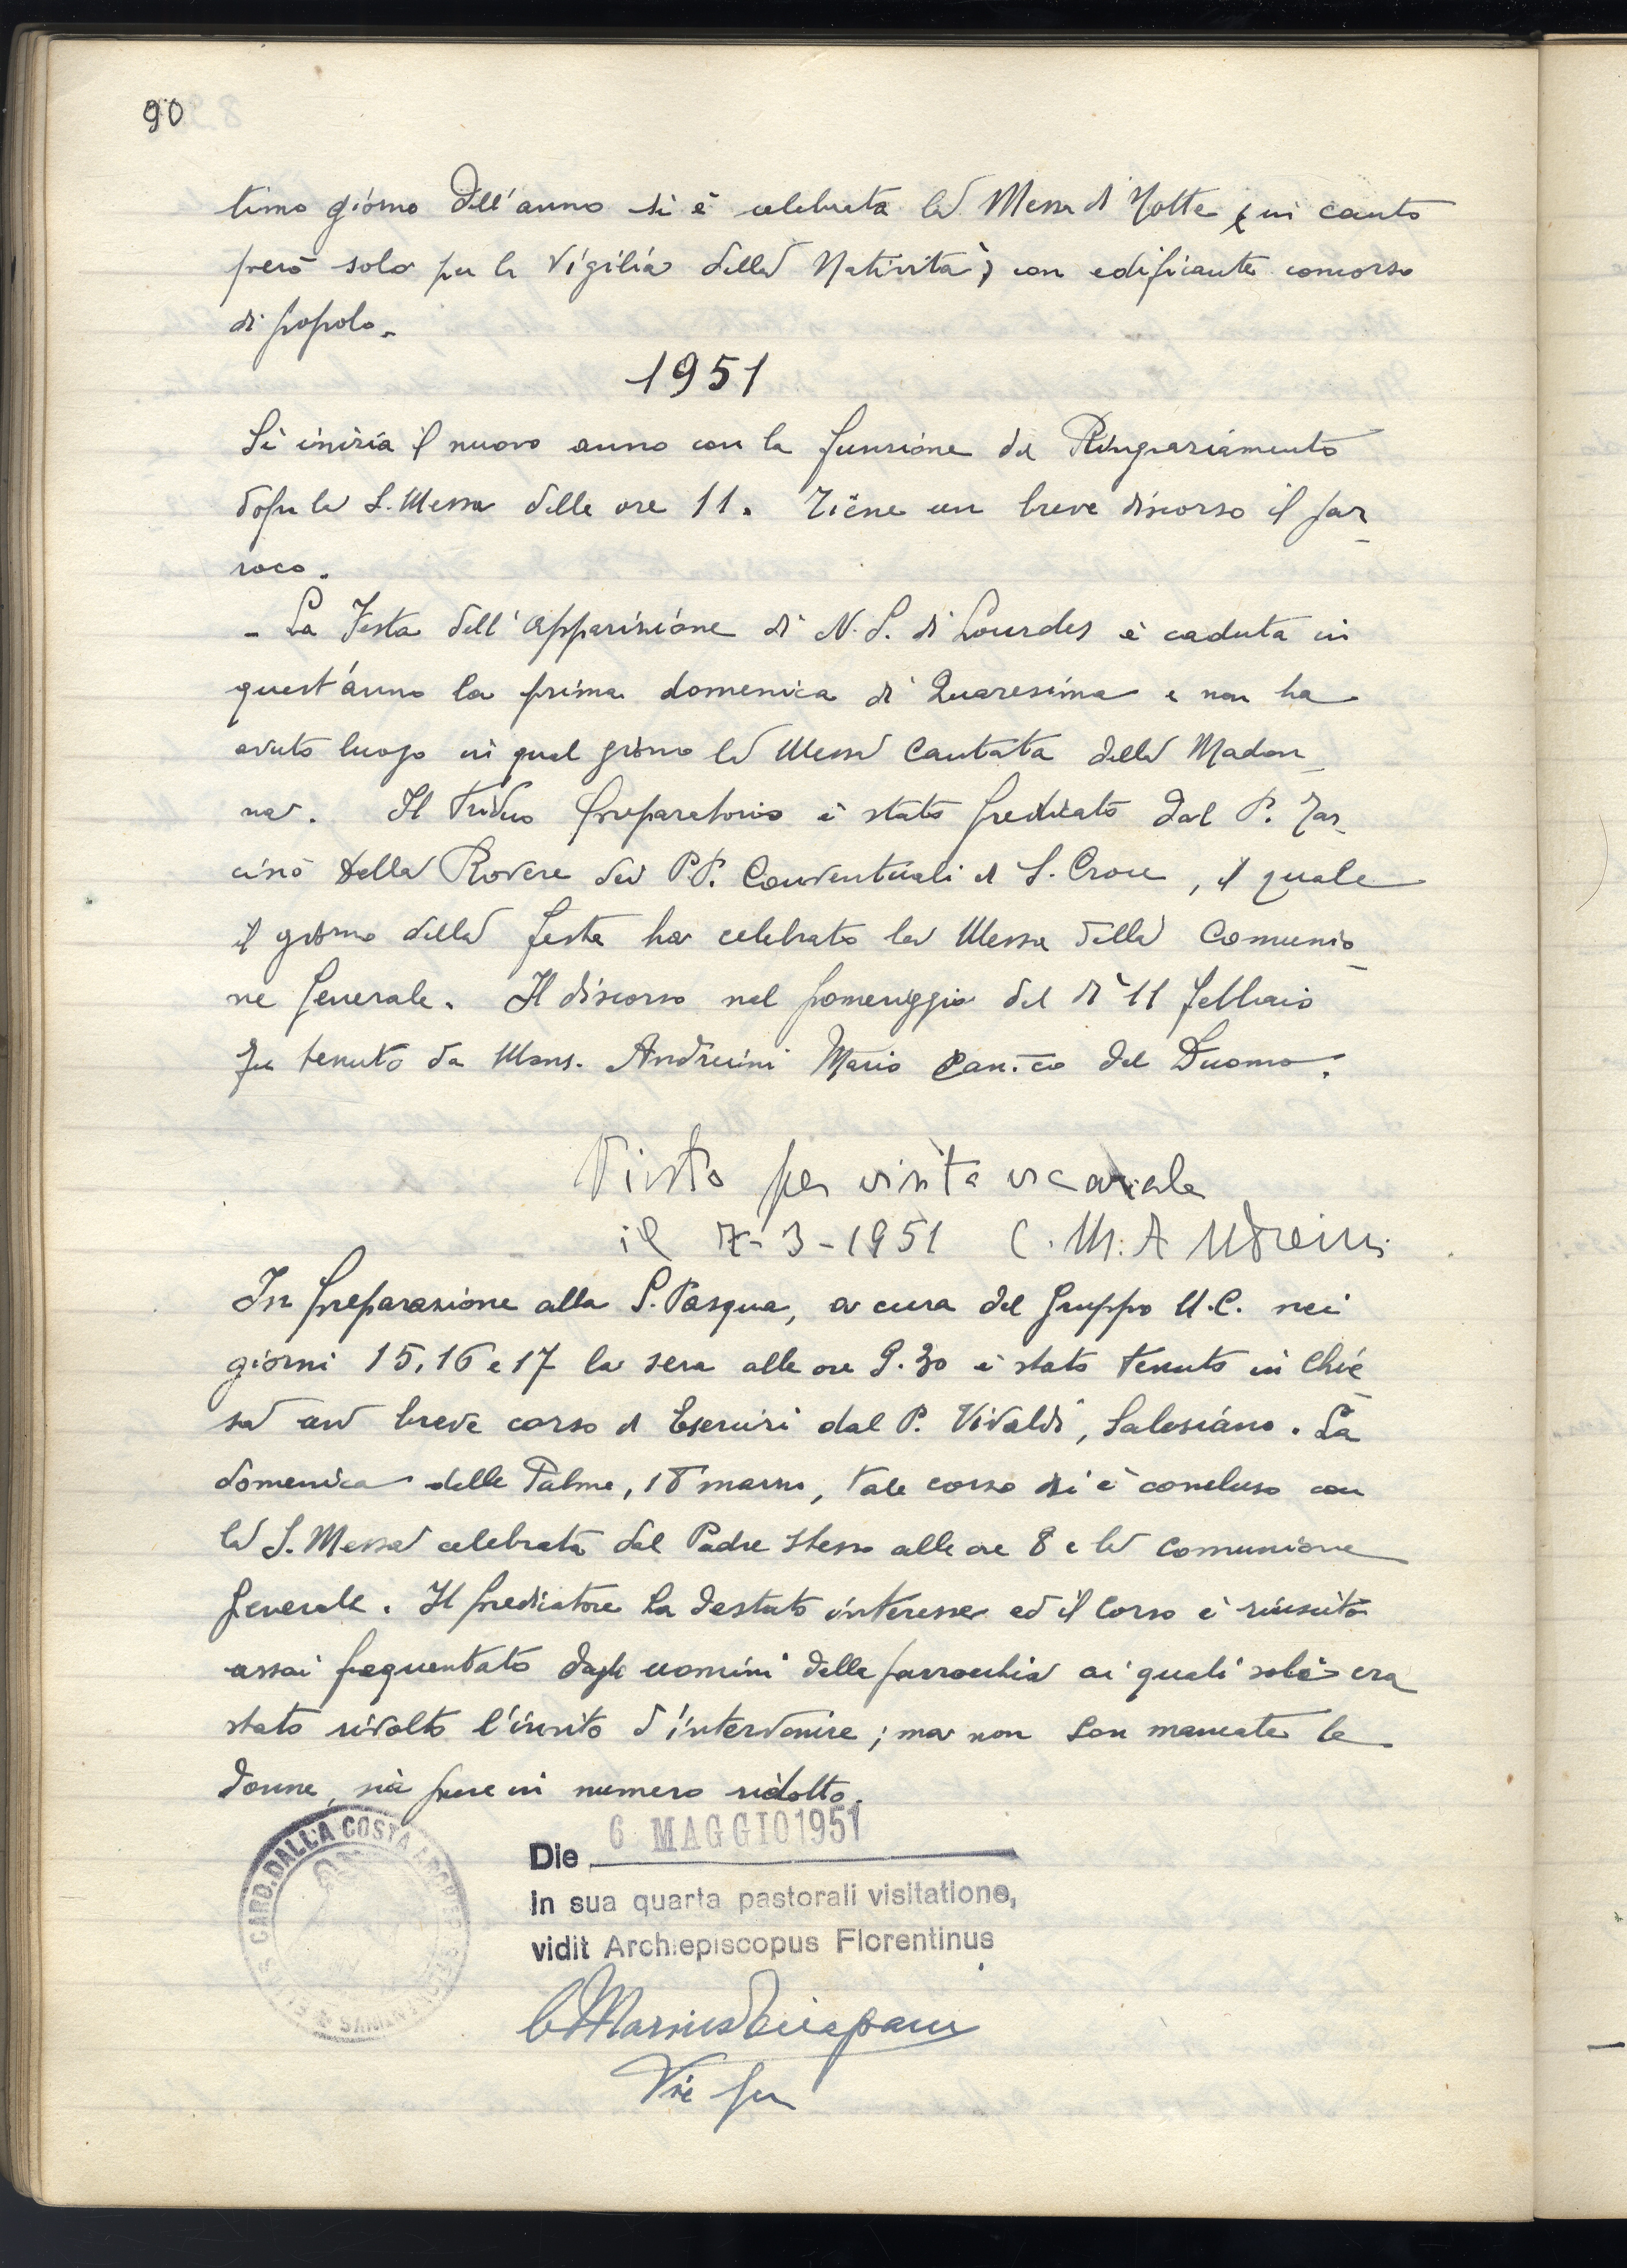 90
timo giorno dell'anno si è celebrata la Messa di Notte, in canto
però solo per la Vigilia della Natività, con edificante concorso
di popolo.
1951
Si inizia il nuovo anno con la funzione di Ringraziamento
dopo la S. Messa delle ore 11. Tiene un breve discorso il par-
roco.
- La Festa dell'Apparizione di N. S. di Lourdes è caduta in
quest'anno la prima domenica di Quaresima e non ha
avuto luogo in quel giorno la Messa Cantata della Madon-
na. Il Triduo preparatorio è stato predicato dal P. Tar-
cisio Della Rovere dei P.P. Conventuali di S. Croce, il quale
il giorno della festa ha celebrato la Messa della Comunio-
ne generale. Il discorso nel pomeriggio del dì 11 febbraio
fu tenuto da Mons. Andreini Mario Can.co del Duomo.
Visto per visita vicariale
il 7-3-1951 C. M. Andreini
In preparazione alla S. Pasqua, a cura del gruppo U.C. nei
giorni 15, 16 e 17 la sera alle ore 9.30 è stato tenuto in Chie-
sa un breve corso di Esercizi dal P. Vivaldi, Salesiano. La
domenica delle Palme, 18 marzo, tale corso si è concluso con
la S. Messa celebrata dal Padre stesso alle ore 8 e la comunione
generale. Il predicatore ha destato interesse ed il corso è riuscito
assai frequentato dagli uomini della parrocchia ai quali solo era
stato rivolto l'invito d'intervenire; ma non son mancate le
donne, sia pure in numero ridotto.
CARD. DALLA COSTA
6 MAGGIO 1951
Die
In sua quarta pastorali visitatione,
vidit Archiepiscopus Florentinus